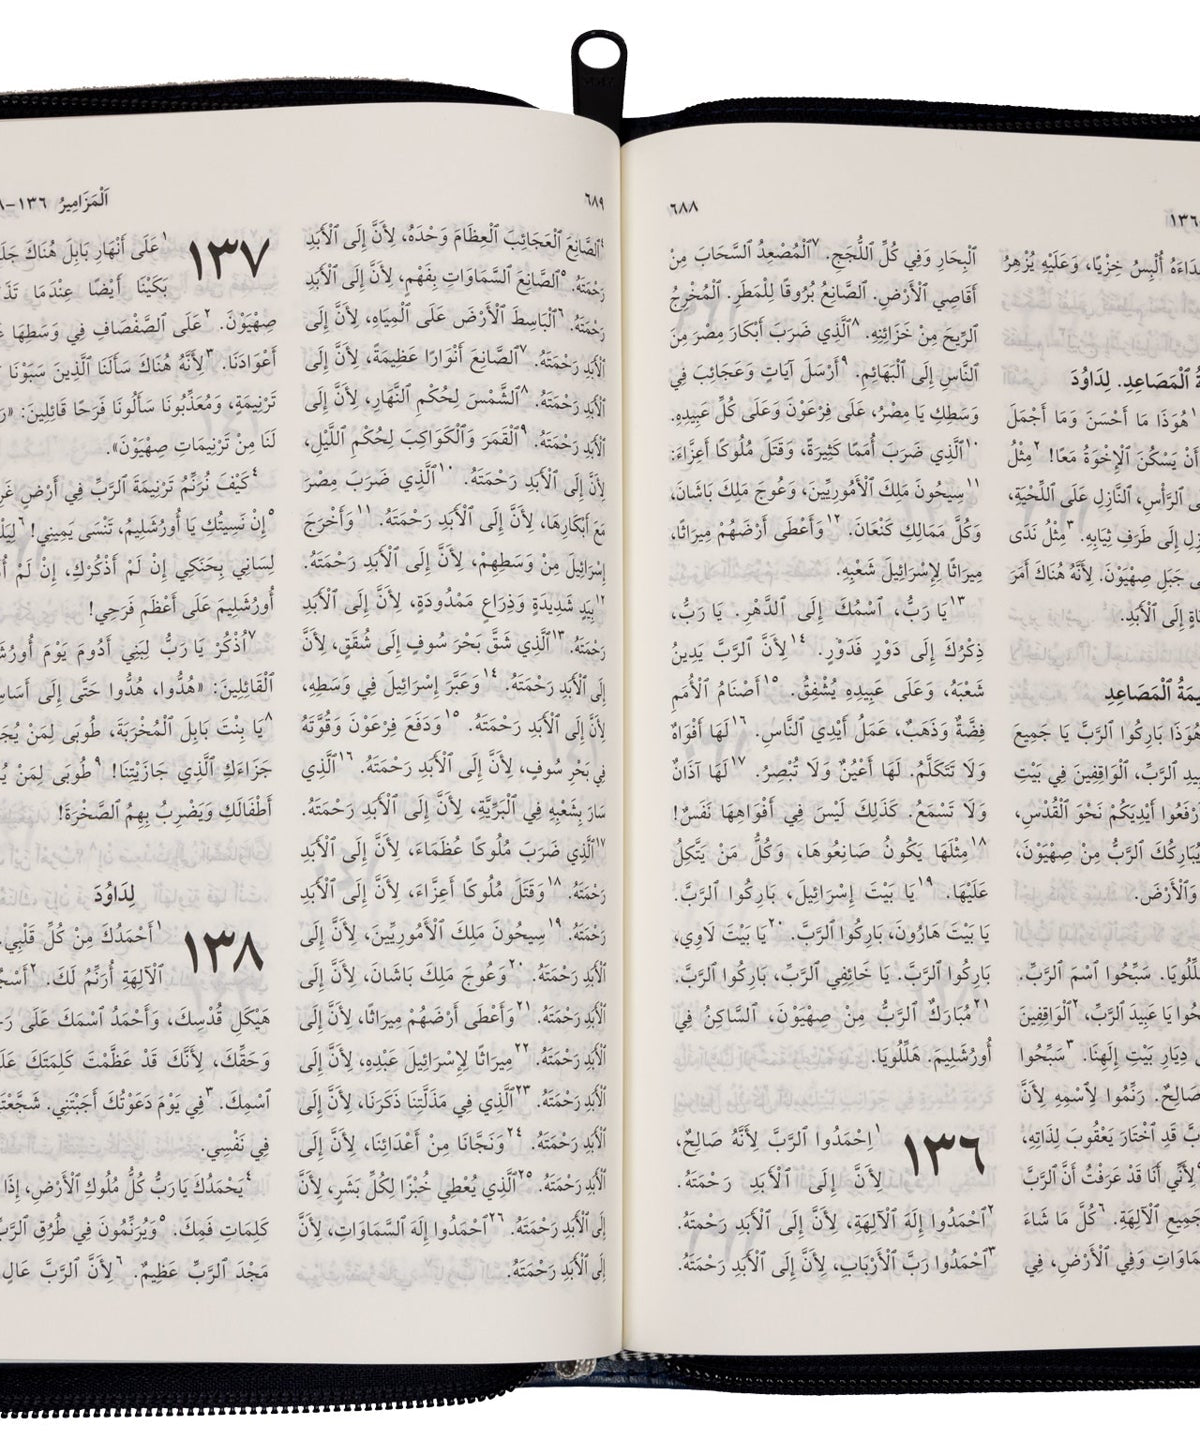 ١٣٦
٦٨٨
أُلْبِسُ خِزْيًا، وَعَلَيْهِ يُزْهِرُ
ٱلْمَصَاعِدِ. لِدَاوُدَ
١هُوَذَا مَا أَحْسَنَ وَمَا أَجْمَلَ
أَنْ يَسْكُنَ ٱلْإِخْوَةُ مَعًا! ٢مِثْلُ
ٱلرَّأْسِ، ٱلنَّازِلِ عَلَى ٱللِّحْيَةِ،
إِلَى طَرَفِ ثِيَابِهِ. ٣مِثْلُ نَدَى
جَبَلِ صِهْيَوْنَ. لِأَنَّهُ هُنَاكَ أَمَرَ
إِلَى ٱلْأَبَدِ.
ٱلْمَصَاعِدِ
هُوَذَا بَارِكُوا ٱلرَّبَّ يَا جَمِيعَ
ٱلرَّبِّ، ٱلْوَاقِفِينَ فِي بَيْتِ
أَيْدِيَكُمْ نَحْوَ ٱلْقُدْسِ،
يُبَارِكُكَ ٱلرَّبُّ مِنْ صِهْيَوْنَ،
وَٱلْأَرْضَ.
سَبِّحُوا ٱسْمَ ٱلرَّبِّ.
يَا عَبِيدَ ٱلرَّبِّ، ٢ٱلْوَاقِفِينَ
دِيَارِ بَيْتِ إِلَهِنَا. ٣سَبِّحُوا
صَالِحٌ. رَنِّمُوا لِٱسْمِهِ لِأَنَّ
قَدِ ٱخْتَارَ يَعْقُوبَ لِذَاتِهِ،
لِأَنِّي أَنَا قَدْ عَرَفْتُ أَنَّ ٱلرَّبَّ
جَمِيعِ ٱلْآلِهَةِ. ٦كُلَّ مَا شَاءَ
وَفِي ٱلْأَرْضِ، فِي
ٱلْبِحَارِ وَفِي كُلِّ ٱللُّجَجِ. ٧ٱلْمُصْعِدُ ٱلسَّحَابَ مِنْ
أَقَاصِي ٱلْأَرْضِ. ٱلصَّانِعُ بُرُوقًا لِلْمَطَرِ. ٱلْمُخْرِجُ
ٱلرِّيحَ مِنْ خَزَائِنِهِ. ٨ٱلَّذِي ضَرَبَ أَبْكَارَ مِصْرَ مِنَ
ٱلنَّاسِ إِلَى ٱلْبَهَائِمِ. ٩أَرْسَلَ آيَاتٍ وَعَجَائِبَ فِي
وَسَطِكِ يَا مِصْرُ، عَلَى فِرْعَوْنَ وَعَلَى كُلِّ عَبِيدِهِ.
١٠ٱلَّذِي ضَرَبَ أُمَمًا كَثِيرَةً، وَقَتَلَ مُلُوكًا أَعِزَّاءَ:
١١سِيحُونَ مَلِكَ ٱلْأَمُورِيِّينَ، وَعُوجَ مَلِكَ بَاشَانَ،
وَكُلَّ مَمَالِكِ كَنْعَانَ. ١٢وَأَعْطَى أَرْضَهُمْ مِيرَاثًا،
مِيرَاثًا لِإِسْرَائِيلَ شَعْبِهِ.
١٣يَا رَبُّ، ٱسْمُكَ إِلَى ٱلدَّهْرِ. يَا رَبُّ،
ذِكْرُكَ إِلَى دَوْرٍ فَدَوْرٍ. ١٤لِأَنَّ ٱلرَّبَّ يَدِينُ
شَعْبَهُ، وَعَلَى عَبِيدِهِ يُشْفِقُ. ١٥أَصْنَامُ ٱلْأُمَمِ
فِضَّةٌ وَذَهَبٌ، عَمَلُ أَيْدِي ٱلنَّاسِ. ١٦لَهَا أَفْوَاهٌ
وَلَا تَتَكَلَّمُ. لَهَا أَعْيُنٌ وَلَا تُبْصِرُ. ١٧لَهَا آذَانٌ
وَلَا تَسْمَعُ. كَذَلِكَ لَيْسَ فِي أَفْوَاهِهَا نَفَسٌ!
١٨مِثْلَهَا يَكُونُ صَانِعُوهَا، وَكُلُّ مَنْ يَتَّكِلُ
عَلَيْهَا. ١٩يَا بَيْتَ إِسْرَائِيلَ، بَارِكُوا ٱلرَّبَّ.
يَا بَيْتَ هَارُونَ، بَارِكُوا ٱلرَّبَّ. ٢٠يَا بَيْتَ لَاوِي،
بَارِكُوا ٱلرَّبَّ. يَا خَائِفِي ٱلرَّبِّ، بَارِكُوا ٱلرَّبَّ.
٢١مُبَارَكٌ ٱلرَّبُّ مِنْ صِهْيَوْنَ، ٱلسَّاكِنُ فِي
أُورُشَلِيمَ. هَلِّلُويَا.
١٣٦ ١اِحْمَدُوا ٱلرَّبَّ لِأَنَّهُ صَالِحٌ،
لِأَنَّ إِلَى ٱلْأَبَدِ رَحْمَتَهُ.
٢ٱحْمَدُوا إِلَهَ ٱلْآلِهَةِ، لِأَنَّ إِلَى ٱلْأَبَدِ رَحْمَتَهُ.
٣ٱحْمَدُوا رَبَّ ٱلْأَرْبَابِ، لِأَنَّ إِلَى ٱلْأَبَدِ رَحْمَتَهُ.
٦٨٩
اَلْمَزَامِيرُ ١٣٦–
٤ٱلصَّانِعَ ٱلْعَجَائِبَ ٱلْعِظَامَ وَحْدَهُ، لِأَنَّ إِلَى ٱلْأَبَدِ
رَحْمَتَهُ. ٥ٱلصَّانِعَ ٱلسَّمَاوَاتِ بِفَهْمٍ، لِأَنَّ إِلَى ٱلْأَبَدِ
رَحْمَتَهُ. ٦ٱلْبَاسِطَ ٱلْأَرْضَ عَلَى ٱلْمِيَاهِ، لِأَنَّ إِلَى
ٱلْأَبَدِ رَحْمَتَهُ. ٧ٱلصَّانِعَ أَنْوَارًا عَظِيمَةً، لِأَنَّ إِلَى
ٱلْأَبَدِ رَحْمَتَهُ. ٨ٱلشَّمْسَ لِحُكْمِ ٱلنَّهَارِ، لِأَنَّ إِلَى
ٱلْأَبَدِ رَحْمَتَهُ. ٩ٱلْقَمَرَ وَٱلْكَوَاكِبَ لِحُكْمِ ٱللَّيْلِ،
لِأَنَّ إِلَى ٱلْأَبَدِ رَحْمَتَهُ. ١٠ٱلَّذِي ضَرَبَ مِصْرَ
مَعَ أَبْكَارِهَا، لِأَنَّ إِلَى ٱلْأَبَدِ رَحْمَتَهُ. ١١وَأَخْرَجَ
إِسْرَائِيلَ مِنْ وَسَطِهِمْ، لِأَنَّ إِلَى ٱلْأَبَدِ رَحْمَتَهُ.
١٢بِيَدٍ شَدِيدَةٍ وَذِرَاعٍ مَمْدُودَةٍ، لِأَنَّ إِلَى ٱلْأَبَدِ
رَحْمَتَهُ. ١٣ٱلَّذِي شَقَّ بَحْرَ سُوفٍ إِلَى شُقَقٍ، لِأَنَّ
إِلَى ٱلْأَبَدِ رَحْمَتَهُ. ١٤وَعَبَّرَ إِسْرَائِيلَ فِي وَسَطِهِ،
لِأَنَّ إِلَى ٱلْأَبَدِ رَحْمَتَهُ. ١٥وَدَفَعَ فِرْعَوْنَ وَقُوَّتَهُ
فِي بَحْرِ سُوفٍ، لِأَنَّ إِلَى ٱلْأَبَدِ رَحْمَتَهُ. ١٦ٱلَّذِي
سَارَ بِشَعْبِهِ فِي ٱلْبَرِّيَّةِ، لِأَنَّ إِلَى ٱلْأَبَدِ رَحْمَتَهُ.
١٧ٱلَّذِي ضَرَبَ مُلُوكًا عُظَمَاءَ، لِأَنَّ إِلَى ٱلْأَبَدِ
رَحْمَتَهُ. ١٨وَقَتَلَ مُلُوكًا أَعِزَّاءَ، لِأَنَّ إِلَى ٱلْأَبَدِ
رَحْمَتَهُ. ١٩سِيحُونَ مَلِكَ ٱلْأَمُورِيِّينَ، لِأَنَّ إِلَى
ٱلْأَبَدِ رَحْمَتَهُ. ٢٠وَعُوجَ مَلِكَ بَاشَانَ، لِأَنَّ إِلَى
ٱلْأَبَدِ رَحْمَتَهُ. ٢١وَأَعْطَى أَرْضَهُمْ مِيرَاثًا، لِأَنَّ إِلَى
ٱلْأَبَدِ رَحْمَتَهُ. ٢٢مِيرَاثًا لِإِسْرَائِيلَ عَبْدِهِ، لِأَنَّ إِلَى
ٱلْأَبَدِ رَحْمَتَهُ. ٢٣ٱلَّذِي فِي مَذَلَّتِنَا ذَكَرَنَا، لِأَنَّ إِلَى
ٱلْأَبَدِ رَحْمَتَهُ. ٢٤وَنَجَّانَا مِنْ أَعْدَائِنَا، لِأَنَّ إِلَى
ٱلْأَبَدِ رَحْمَتَهُ. ٢٥ٱلَّذِي يُعْطِي خُبْزًا لِكُلِّ بَشَرٍ، لِأَنَّ
إِلَى ٱلْأَبَدِ رَحْمَتَهُ. ٢٦ٱحْمَدُوا إِلَهَ ٱلسَّمَاوَاتِ، لِأَنَّ
إِلَى ٱلْأَبَدِ رَحْمَتَهُ.
١٣٧ ١عَلَى أَنْهَارِ بَابِلَ هُنَاكَ
بَكَيْنَا أَيْضًا عِنْدَمَا
صِهْيَوْنَ. ٢عَلَى ٱلصَّفْصَافِ فِي وَسَطِهَا
أَعْوَادَنَا. ٣لِأَنَّهُ هُنَاكَ سَأَلَنَا ٱلَّذِينَ سَبَوْنَا
تَرْنِيمَةٍ، وَمُعَذِّبُونَا سَأَلُونَا فَرَحًا قَائِلِينَ:
لَنَا مِنْ تَرْنِيمَاتِ صِهْيَوْنَ».
٤كَيْفَ نُرَنِّمُ تَرْنِيمَةَ ٱلرَّبِّ فِي أَرْضٍ
٥إِنْ نَسِيتُكِ يَا أُورُشَلِيمُ، تَنْسَى يَمِينِي!
لِسَانِي بِحَنَكِي إِنْ لَمْ أَذْكُرْكِ، إِنْ لَمْ
أُورُشَلِيمَ عَلَى أَعْظَمِ فَرَحِي!
٧اُذْكُرْ يَا رَبُّ لِبَنِي أَدُومَ يَوْمَ
ٱلْقَائِلِينَ: «هُدُّوا، هُدُّوا حَتَّى إِلَى
٨يَا بِنْتَ بَابِلَ ٱلْمُخْرَبَةَ، طُوبَى لِمَنْ
جَزَاءَكِ ٱلَّذِي جَازَيْتِنَا! ٩طُوبَى لِمَنْ
أَطْفَالَكِ وَيَضْرِبُ بِهِمُ ٱلصَّخْرَةَ!
لِدَاوُدَ
١٣٨ ١أَحْمَدُكَ مِنْ كُلِّ قَلْبِي.
ٱلْآلِهَةِ أُرَنِّمُ لَكَ.
هَيْكَلِ قُدْسِكَ، وَأَحْمَدُ ٱسْمَكَ عَلَى
وَحَقِّكَ، لِأَنَّكَ قَدْ عَظَّمْتَ كَلِمَتَكَ
ٱسْمِكَ. ٣فِي يَوْمَ دَعَوْتُكَ أَجَبْتَنِي.
فِي نَفْسِي.
٤يَحْمَدُكَ يَا رَبُّ كُلُّ مُلُوكِ ٱلْأَرْضِ، إِذَا
كَلِمَاتِ فَمِكَ. ٥وَيُرَنِّمُونَ فِي طُرُقِ
مَجْدَ ٱلرَّبِّ عَظِيمٌ. ٦لِأَنَّ ٱلرَّبَّ عَالٍ